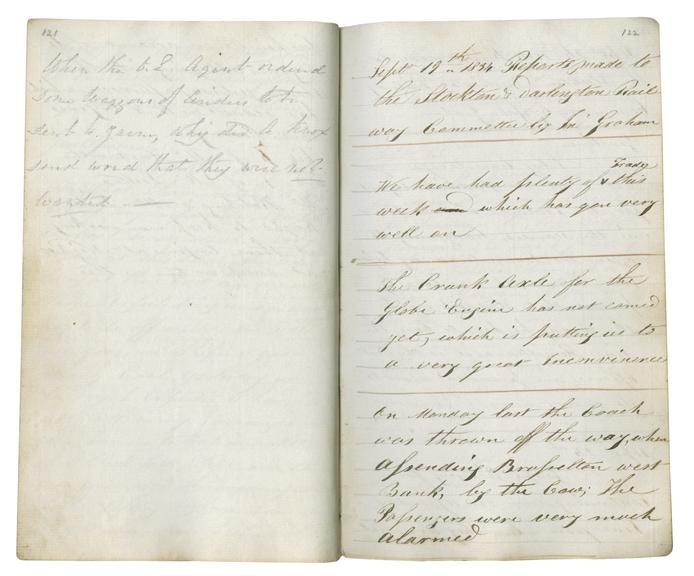 121
When the C.E. Agent ordered
some waggons of Cinders to be
sent to Yarm, Why did
send word that they were not
wanted —
122
Septr 19th 1834 Reports made to
the Stockton & Darlington Rail
way Committee by Jno Graham
We have had plenty of Trade this
week which has gon very
well on
The Crank Axle for the
Globe Engine has not comed
yet, which is putting us to
a very great Inconvinence
On Monday last the Coach
was thrown off the way, when
Assending Brusselton west
Bank, by the Cow; The
Passengers were very much
alarmed